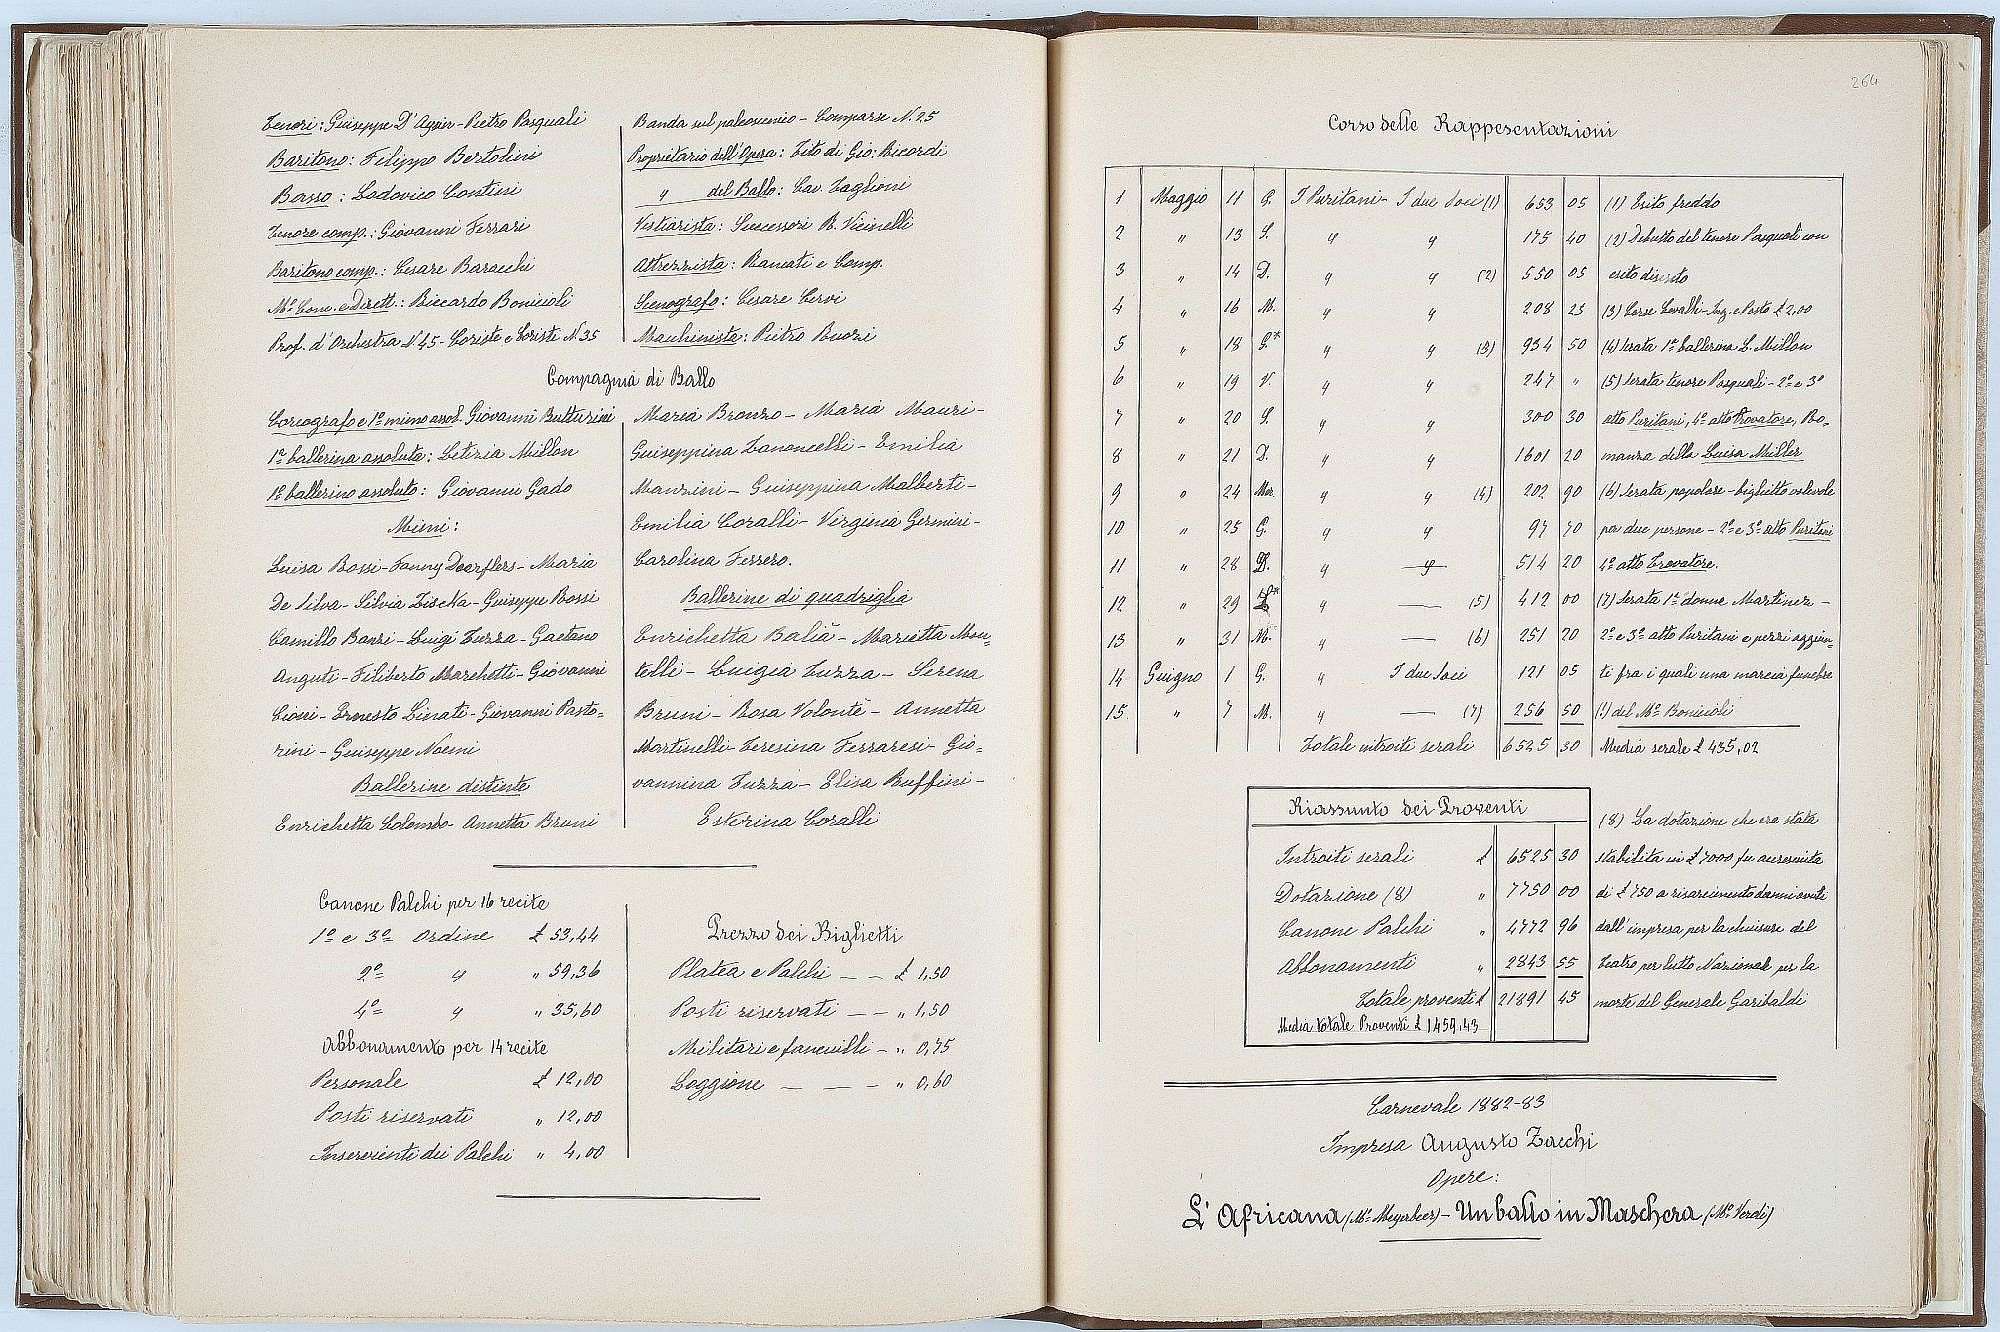 Tenori: Guiseppe D'Agnin - Pietro Pasquali
Baritono: Filippo Bertolini
Basso: Lodovico Contini
Tenore comp.: Giovanni Ferrari
Baritono comp.: Cesare Baracchi
Mº Conc. e Dirett.: Riccardo Bonicioli
Prof. d'Orchestra Nº 45 - Coriste e Coristi N. 35
Banda sul palcoscenico - Comparse N. 25
Proprietario dell'Opera: Tito di Gio: Ricordi
" del Ballo: Cav. Taglioni
Vestiarista: Successori R. Vicinelli
Attrezzista: Rancati e Comp.
Scenografo: Cesare Cervi
Machinista: Pietro Buozi
Compagnia di Ballo
Coreografo e 1º mimo assol. Giovanni Butturini
1ª ballerina assoluta: Letizia Millon
1º ballerino assoluto: Giovanni Gado
Mimi:
Luisa Bossi - Fanny Doerflers - Maria
De Silva - Silvia Zischa - Guiseppe Bossi
Camillo Banzi - Luigi Tuzza - Gaetano
Anguti - Filiberto Marchetti - Giovanni
Ciossi - Ernesto Linati - Giovanni Pasto=
rini - Guiseppe Noemi
Ballerine distinte
Enrichetta Colombo - Annetta Bruni
Maria Bronzo - Maria Mauri -
Guiseppina Zanoncelli - Emilia
Manzini - Guiseppina Malberti -
Emilia Coralli - Virginia Germini -
Carolina Ferrero.
Ballerine di quadriglia
Enrichetta Balia - Marietta Mon=
telli - Luigia Tuzza - Serena
Bruni - Rosa Volontè - Annetta
Martinelli - Teresina Ferraresi - Gio=
vannina Tuzza - Elisa Ruffini -
Esterina Coralli
Canone Palchi per 16 recite
1º e 3º Ordine £ 53,44
2º " " 59,36
4º " " 35,60
Abbonamento per 14 recite
Personale £ 12,00
Posti riservati " 12,00
Inservienti dei Palchi " 4,00
Prezzo dei Biglietti
Platea e Palchi — — £ 1,50
Posti riservati — — " 1,50
Militari e fanciulli — " 0,75
Loggione — — — " 0,60
264
Corso delle Rappesentazioni
1 Maggio 11 G. I Puritani - I due Soci (1) 653 05 (1) Esito freddo
2 " 13 S. " " 175 40 (2) Debutto del tenore Pasquali con
3 " 14 D. " " (2) 550 05 esito discreto
4 " 16 M. " " 208 25 (3) Corse Cavalli - Ing. e Posto £ 2,00
5 " 18 G.* " " (3) 934 50 (4) Serata 1ª ballerina L. Millon
6 " 19 V. " " 247 " (5) Serata tenore Pasquali - 2º e 3º
7 " 20 S. " " 300 30 atto Puritani, 4º atto Trovatore, Ro=
8 " 21 D. " " 1601 20 manza della Luisa Miller
9 " 24 Mer. " " (4) 202 90 (6) Serata popolare - biglietto valevole
10 " 25 G. " " 97 70 per due persone - 2º e 3º atto Puritani
11 " 28 D. " " 514 20 4º atto Trovatore.
12 " 29 L* " — (5) 412 00 (7) Serata 1ª donna Martinez -
13 " 31 M. " — (6) 251 20 2º e 3º atto Puritani e pezzi aggiun=
14 Guigno 1 G. " I due Soci 121 05 ti fra i quali una marcia funebre
15 " 7 M. " — (7) 256 50 (!) del Mº Bonicioli
Totale introiti serali 6525 30 Media serale £ 435,02
Riassunto dei Proventi
Introiti serali £ 6525 30
Dotazione (8) " 7750 00
Canone Palchi " 4772 96
Abbonamenti " 2843 55
Totale proventi £ 21891 45
Media totale Proventi £ 1459,43
(8) La dotazione che era stata
stabilita in £ 7000 fu accresciuta
di £ 750 a risarcimento danni avuti
dall'impresa per la chiusura del
Teatro per lutto Nazionale per la
morte del Generale Garibaldi
Carnevale 1882-83
Impresa Augusto Zacchi
Opere:
L'Africana (Mº Meyerbeer) - Un ballo in Maschera (Mº Verdi)